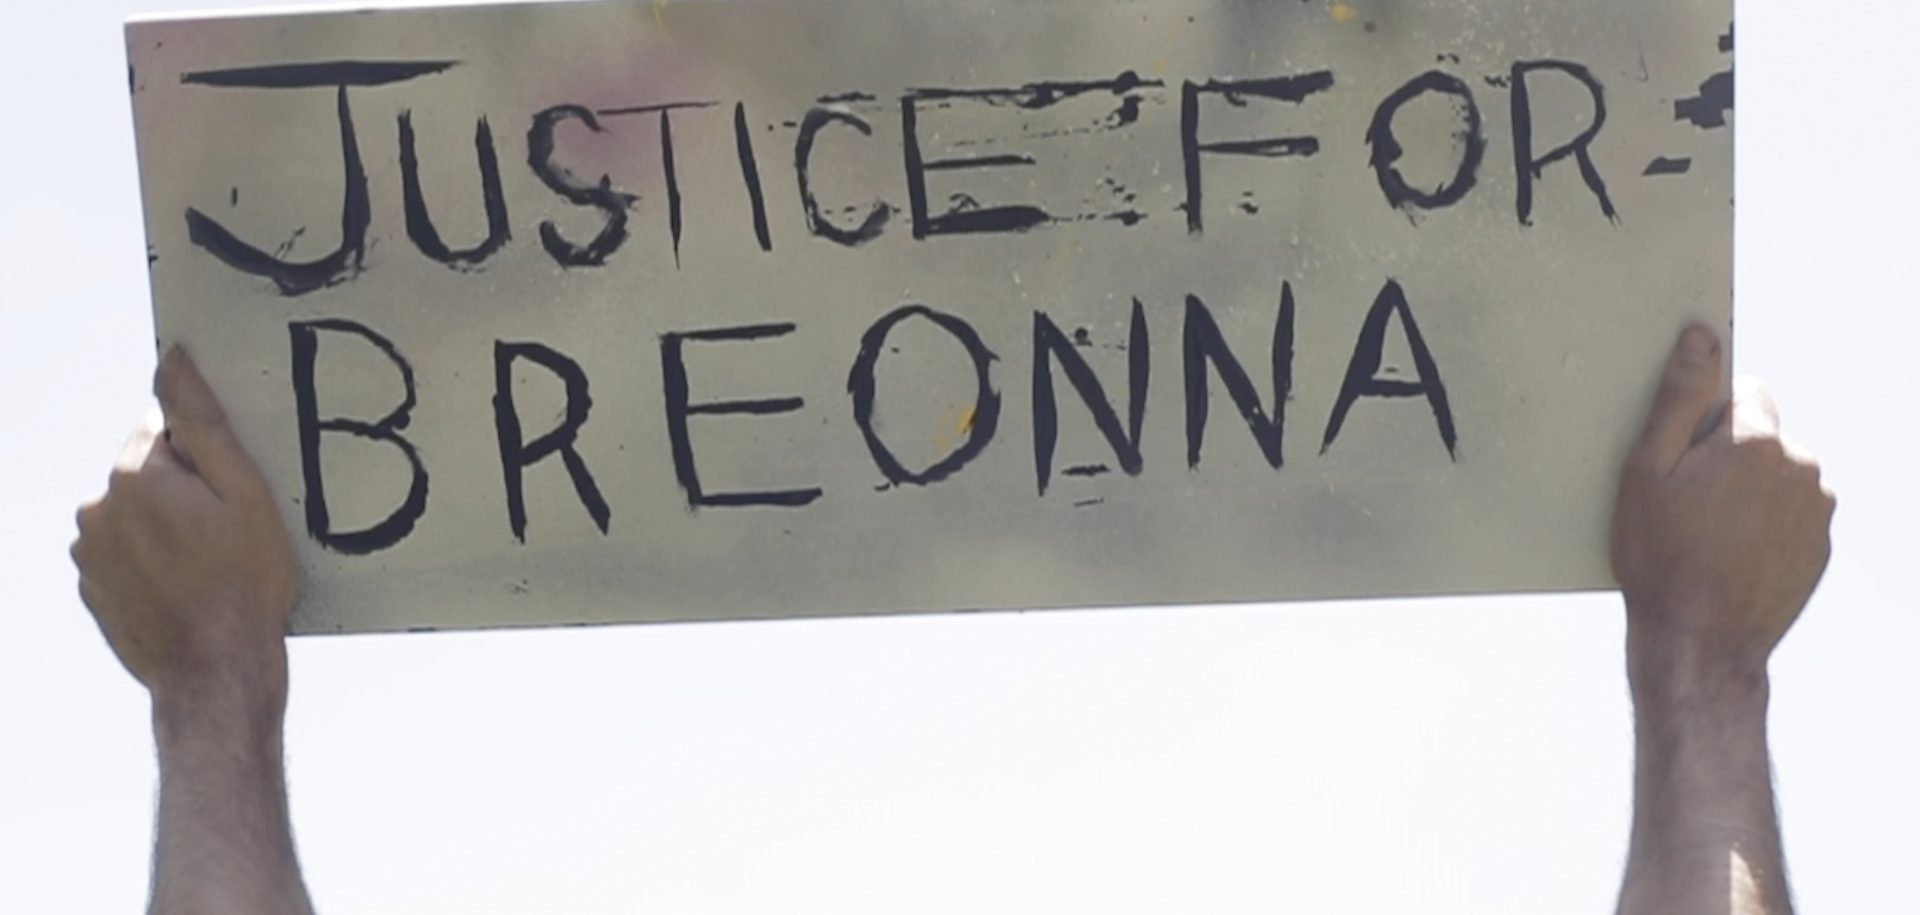 JUSTICE FOR-
BREONNA